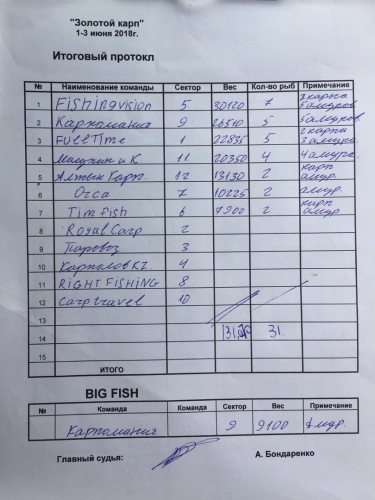 "Золотой карп"
1-3 июня 2018г.
Итоговый протокл
№ Наименование команды Сектор Вес Кол-во рыб Примечание
1 Fishingvision 5 30120 7 2 карпа 5 амуров
2 Карпомания 9 26510 5 5 амуров
3 FullTime 1 22835 5 2 карпа 3 амура
4 и К 11 20350 4 4 амура
5 Алтын Карп 12 13130 2 карп амур
6 Orca 7 10225 2 амур
7 Tim fish 6 7900 2 карп амур
8 Royal Carp 2
9 Паровоз 3
10 КарполовKZ 4
11 RIGHT FISHING 8
12 Carp travel 10
13
14 31.
15
ИТОГО
BIG FISH
№ Команда Команда Сектор Вес Примечание
Карпомания 9 9100 амур
Главный судья: А. Бондаренко